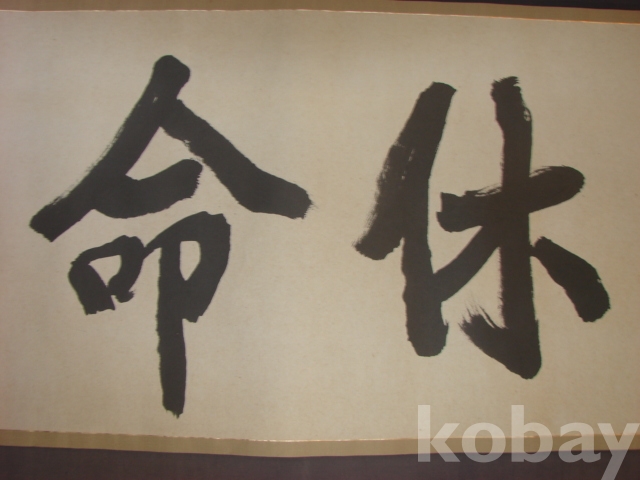 休命
kobay